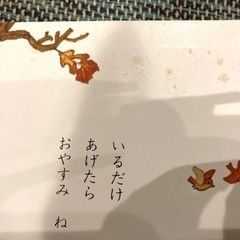 いるだけ
あげたら
おやすみ　ね